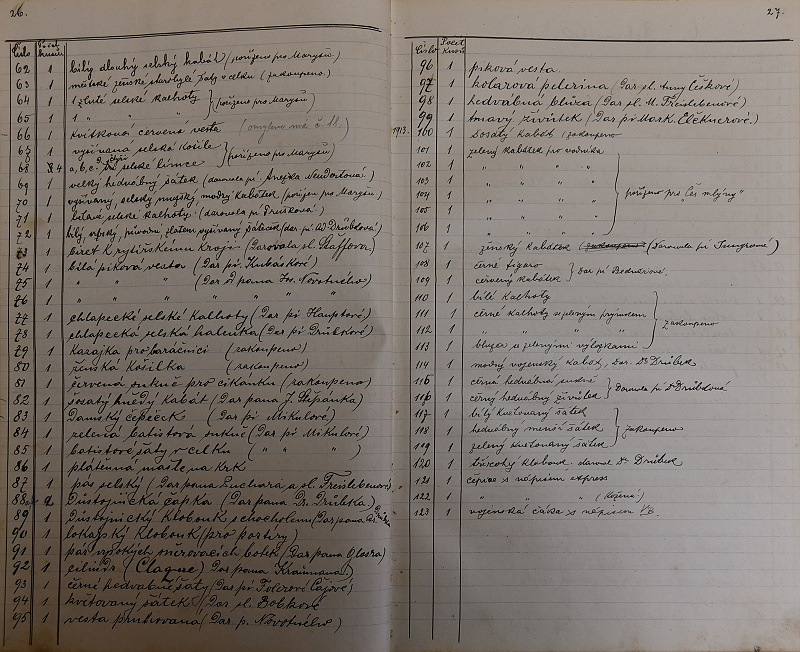 26.
Číslo Počet kusů
62 1 bílý dlouhý selský kabát (pořízeno pro Maryšu)
63 1 městské ženské starobylé šaty v celku (zakoupeno)
64 1 1 žluté selské kalhoty } pořízeno pro Maryšu)
65 1 1 " " "
66 1 kvítkovaná červená vesta (omylem má č. 18.)
67 1 vyšívaná selská košile } (pořízeno pro Maryšu)
68 4 a, b, c, d čtyři selské límce
69 1 velký hedvábný šátek (darovala pí
70 1 vyšívaný, selský mužský, modrý kabátek (pořízen pro Maryšu)
71 1 bílavé selské kalhoty (darovala pí
72 1 bílý, původní, zlatem vyšívaný šáteček (dar pí Ad. Drůbkdová)
73 1 biret k rytířskému kroji (Darovala sl. Štafflova)
74 1 bílá piková vesta (Dar pí. Kubáskové)
75 1 " " " (Dar pana Jos. Novotného)
76 1 " " "
77 1 chlapecké selské kalhoty (Dar pí Hauptové)
78 1 chlapecká selská halenka (Dar pí Drůbkové)
79 1 Kazajka pro baráčnici (zakoupeno)
80 1 ženská košilka (zakoupeno)
81 1 červená sukně pro cikánku (zakoupeno)
82 1 šosatý hnědý kabát (Dar pana J. Štěpánka)
83 1 Damský čepeček (Dar pí Mikulové)
84 1 zelená batistová sukně (Dar pí Mikulové)
85 1 batistové šaty v celku ( " " " )
86 1 plátěnná mašle na krk
87 1 pás selský (Dar pana Puchara a sl. Freislebenové)
88 2 Důstojnická čapka (Dar pana Dr. Drůbka)
89 1 Důstojnický klobouk s chocholem (Dar pana Dr. Drůbka
90 1 lokajský klobouk (pro portýry)
91 1 pár vysokých šněrovacích botek (Dar pana
92 1 cilindr (Claque) Dar pana Kraumana)
93 1 černé hedvábné šaty (Dar pí
94 1 květovaný šátek (Dar sl. Bobkové
95 1 vesta pruhovaná (Dar p. Novotného)
27.
Číslo Počet kusů
96 1 piková vesta
97 1 kolárová pelerina (Dar sl. Anny Češkové)
98 1 hedvábná blůza (Dar sl. M. Freislebenové)
99 1 tmavý živůtek (Dar pí Mark. Elecknerové)
1913. 100 1 šosatý kabát / zakoupeno
101 1 zelený kabátek pro vodníka
102 1 " " " "
103 1 " " " "
104 1 " " " " } pořízeno pro "Čes. mlýny"
105 1 " " " "
106 1 " " " "
107 1 ženský kabátek (zakoupeno) (Darovala pí
108 1 černé figaro } Dar pí Bednářové
109 1 červený kabátek
110 1 bílé kalhoty
111 1 černé kalhoty se zeleným prýmkem
112 1 " " " " } zakoupeno
113 1 bluza se zelenými výložkami
114 1 modrý vojenský kabát, Dar. Dr. Drůbek
115 1 černá hedvábná sukně } Darovala pí Drůbkdová
116 1 černý hedvábný živůtek
117 1 bílý květovaný šátek
118 1 hedvábný menší šátek } zakoupeno
119 1 zelený květovaný šátek
120 1 klobouk daroval Dr. Drůbek
121 1 čepice s nápisem express
122 1 " " " (Kožená)
123 1 vojenská čáka s nápisem VB.